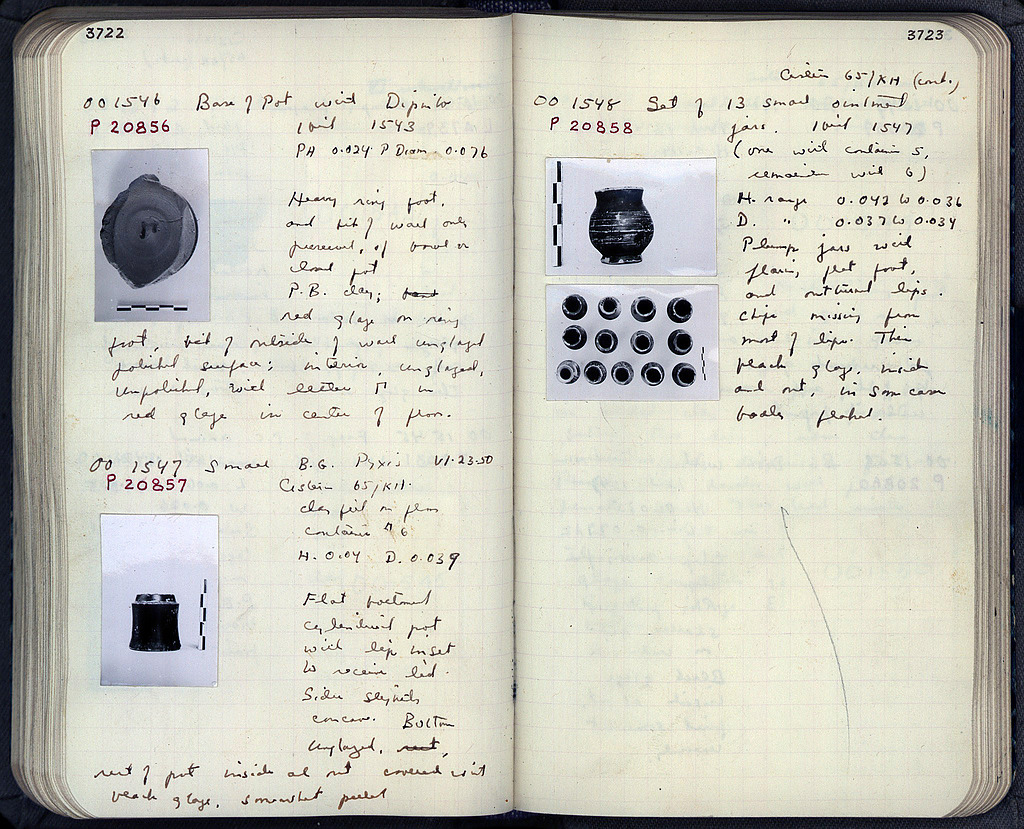 3722
OO 1546 Base of Pot with Dipinto
P 20856
With 1543
PH 0.024 P Diam. 0.076
Heavy ring foot,
and bit of wall only
preserved, of bowl or
closed pot
P.B. clay;
red glaze on ring
foot, bit of outside of wall unglazed
polished surface; interior, unglazed,
unpolished, with letter in
red glaze in center of floor.
OO 1547 Small B.G. Pyxis VI-23-50
P 20857
Cistern 65/KH.
clay fill on floor
container 6
H. 0.04 D. 0.039
Flat bottomed
cylindrical pot
with lip inset
to receive lid.
Sides slightly
concave. Bottom
unglazed, rest,
rest of pot inside and out covered with
black glaze, somewhat peeled
3723
Cistern 65/KH (cont.)
OO 1548 Set of 13 small ointment
P 20858
jars. With 1547
(one with container 5,
remainder with 6)
H. range 0.042 to 0.036
D. " 0.037 to 0.034
Plump jars with
flaring, flat foot,
and outturned lips.
Chips missing from
most of lips. Thin
black glaze, inside
and out, in some cases
badly flaked.